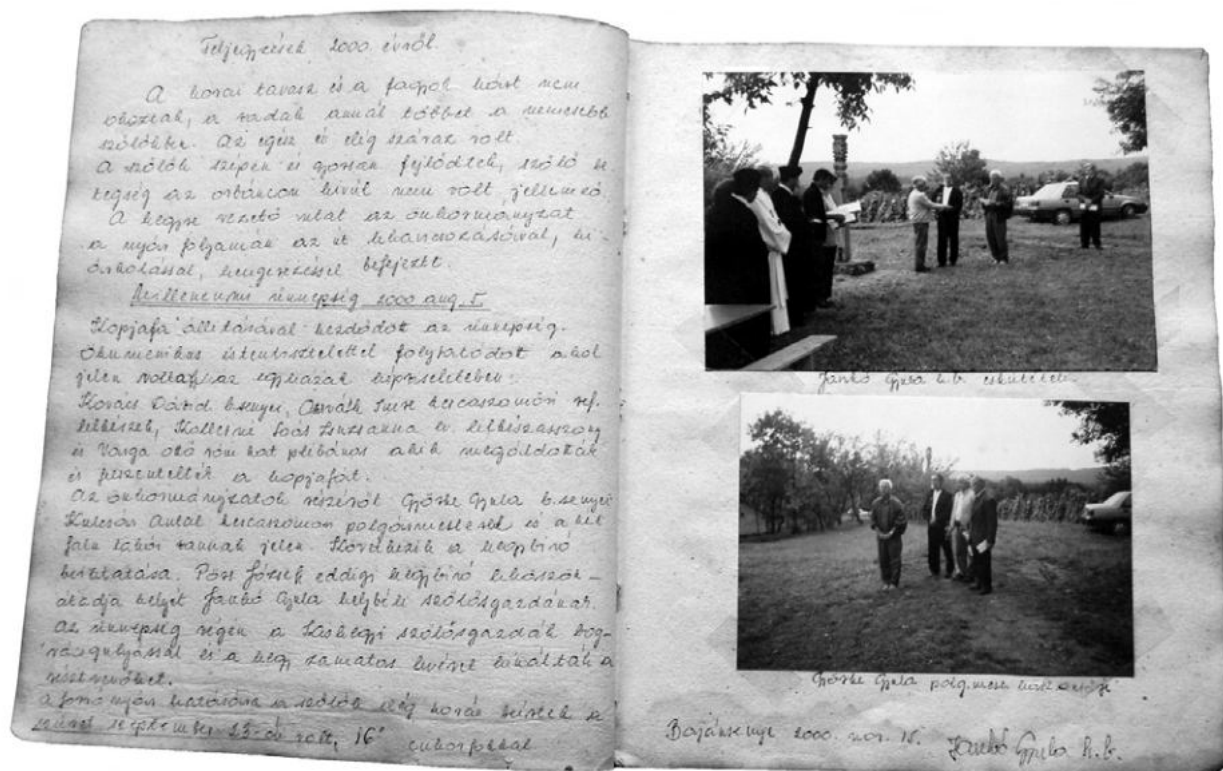 Feljegyzések 2000 évről.
A korai tavasz és a fagyok kárt nem
okoztak, a vadak annál többet a nemesebb
szőlőkbe. Az egész év elég száraz volt.
A szőlők szépen és gyorsan fejlődtek, szőlő be
tegség az orbáncon kívül nem volt jellemző.
A hegyre vezető utat az önkormányzat
a nyár folyamán az út lehancsozásával, ki-
árkolással, hengerezéssel befejezte.
Millenneumi ünnepség 2000 aug 5.
Kopjafa állításával kezdődött az ünnepség.
Ökumenikus istentisztelettel folytatódott ahol
jelen voltak az egyházak képviseletében:
Kovács Dávid b.senyei, Horváth Imre kercaszomori ref.
lelkészek, Soós Zsuzsanna ev. lelkészasszony
és Varga Ottó róm kat plébános akik megáldották
és felszentelték a kopjafát.
Az önkormányzatok részéről Györke Gyula b.senyei
Kulcsár Antal kercaszomori polgármesterek és a két
falu lakói vannak jelen. Következik a hegybíró
beiktatása. Pöre József eddigi hegybíró leköszön-
átadja helyét Jankó Gyula helybéli szőlősgazdának.
Az ünnepség végén a Lashegyi szőlősgazdák bog-
rácsgulyással és a hegy zamatos levével kínálták a
résztvevőket.
A forró nyár hatására a szőlők elég korán értek be
szüret szeptember 23-án volt, 16° cukorfokkal
Jankó Gyula h.b. eskütétele
Györke Gyula polg.mester
Bajánsenye 2000. nov. 15. Jankó Gyula h.b.